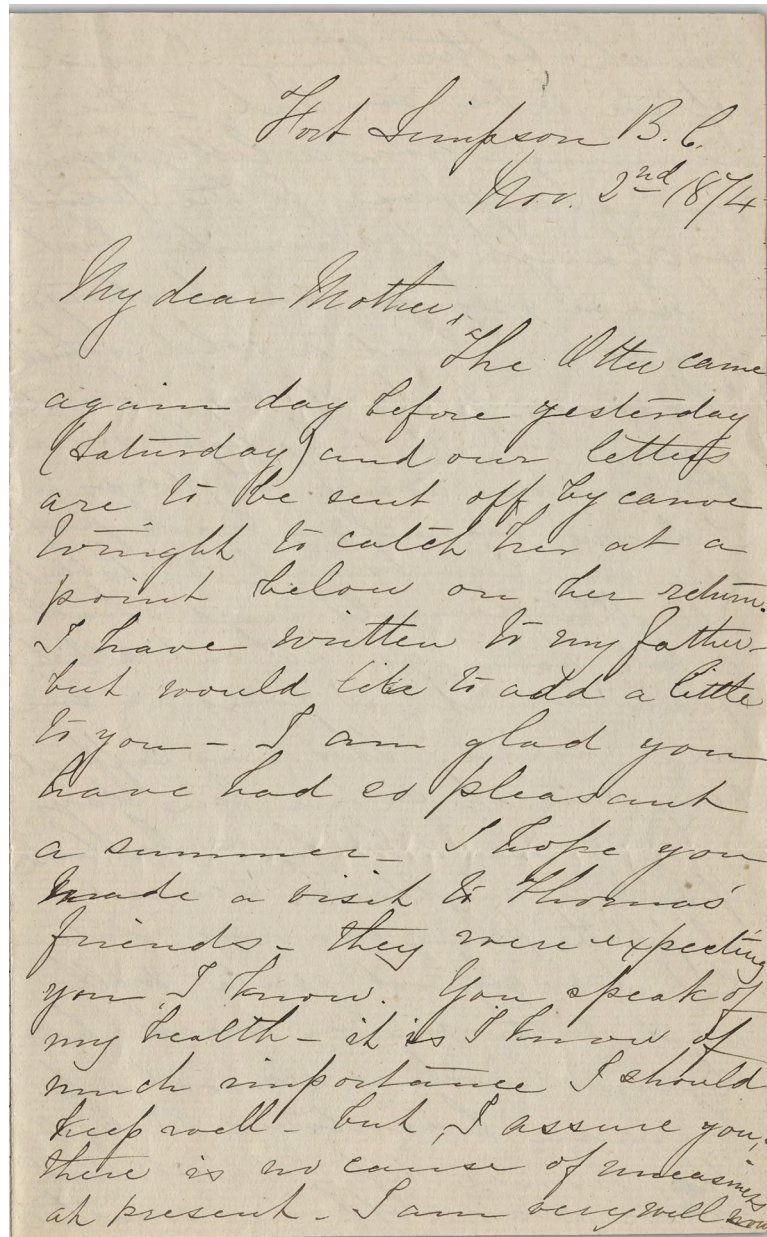 Fort Simpson B.C.
Nov. 2nd 1874
My dear Mother,
The Otter came
again day before yesterday
(Saturday) and our letters
are to be sent off by canoe
to'night to catch her at a
point below on her return.
I have written to my father-
but would like to add a little
to you - I am glad you
have had so pleasant
a summer - I hope you
made a visit to Thomas'
friends - they were expecting
you, I know. You speak of
my health - it is I know of
much importance I should
keep well - but, I assure you,
there is no cause of uneasiness
at present - I am very well now